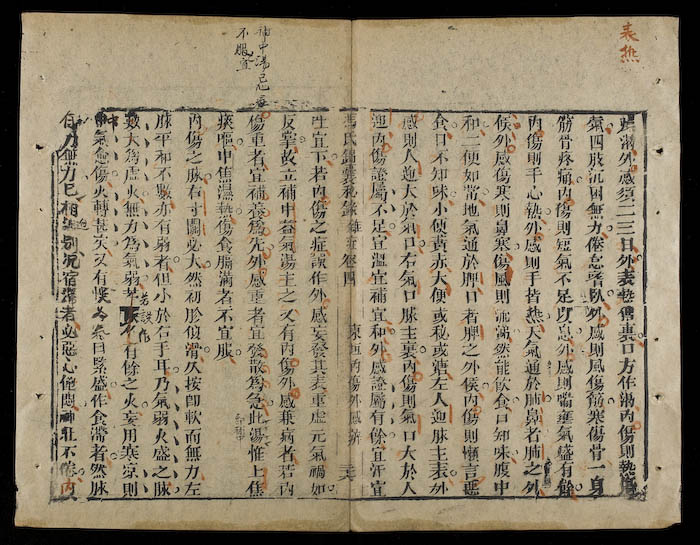 表熱
口渴外感須二三日外表熱傳裏口方作渴內傷則熱傷
氣四肢沉困無力倦怠嗜臥外感則風傷筋寒傷骨一身
筋骨疼痛內傷則短氣不足以息外感則喘壅氣盛有餘
內傷則手心熱外感則手背熱天氣通於肺鼻者肺之外
候外感傷寒則鼻塞傷風則流涕然能飲食口知味腹中
和二便如常地氣通於脾口者脾之外候內傷則懶言惡
食口不知味小便黃赤大便或秘或溏左人迎脉主表外
感則人迎大於氣口右氣口脉主裏內傷則氣口大於人
迎內傷證屬不足宜溫宜補宜和外感證屬有餘宜汗宜
馮氏錦囊秘錄 雜症卷四 東垣內傷外感辨
吐宜下若內傷之症誤作外感妄發其表重虛元氣禍如
反掌故立補中益氣湯主之又有內傷外感兼病者若內
傷重者宜補養為先外感重者宜發散為急此湯惟上焦
痰嘔中焦濕熱傷食膈滿者不宜服
補中湯已
不服宜
內傷之脉右寸關必大然初於便滑久按即軟而無力左
脉平和不數亦有弱者但小於右手耳乃氣弱火盛之脉
數大為虛火無力為氣弱若誤作有餘之火妄用寒涼則
中氣愈傷火轉甚矣又有日緊盛作食滯者然脉
有力無力已相判況宿滯者必惡心飽悶神壯不倦內